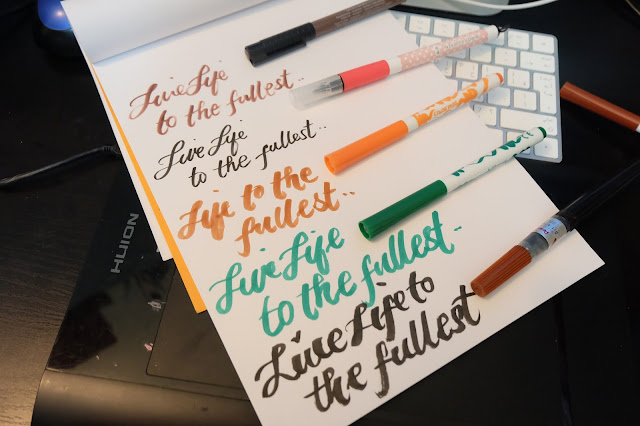 Live Life
to the fullest..
Live Life
to the fullest..
Live to the
fullest..
Live Life
to the fullest..
Live Life to
the fullest
HUION